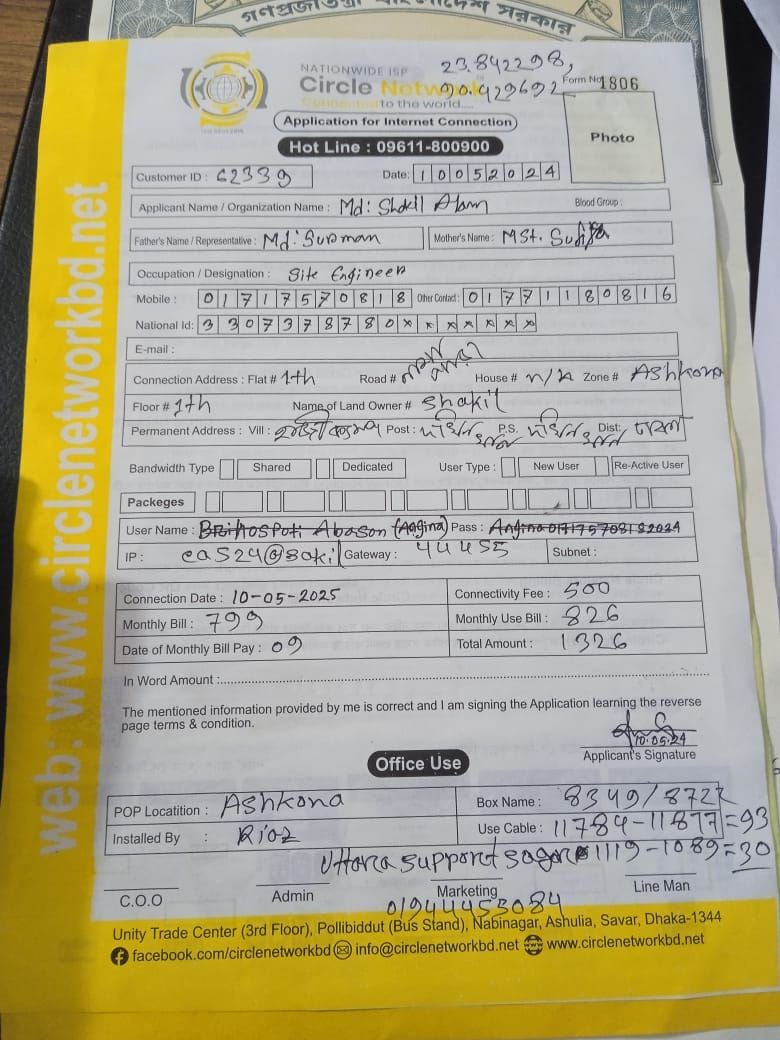 গণপ্রজাতন্ত্রী বাংলাদেশ সরকার
NATIONWIDE ISP
23.842298,
Circle Network
90.429692
Form No 1806
Connected to the world....
Application for Internet Connection
Photo
Hot Line : 09611-800900
Customer ID : 62339 Date: 10052024
Applicant Name / Organization Name : Md: Shakil Alam Blood Group :
Father's Name / Representative : Md: Suruman Mother's Name : MSt. Sufia
Occupation / Designation : Site Engineer
Mobile : 01717570818 Other Contact : 01771180816
National Id: 3307378780xxxxxxx
E-mail :
Connection Address : Flat # 1th Road # House # n/A Zone # Ashkona
Floor # 1th Name of Land Owner # Shakil
Permanent Address : Vill : Post : দক্ষিনখান P.S. দক্ষিনখান Dist: ঢাকা
Bandwidth Type Shared Dedicated User Type : New User Re-Active User
Packeges
User Name : Brihospoti Abason (Angina) Pass : Angina 01717570818 2024
IP : cas24@sakil Gateway : 44455 Subnet :
Connection Date : 10-05-2025 Connectivity Fee : 500
Monthly Bill : 799 Monthly Use Bill : 826
Date of Monthly Bill Pay : 09 Total Amount : 1326
In Word Amount :
The mentioned information provided by me is correct and I am signing the Application learning the reverse
page terms & condition.
10.05.24
Applicant's Signature
Office Use
POP Locatition : Ashkona Box Name : 8349/8722
Installed By : Riaz Use Cable : 11784-11877=93
Uttara support sagor 1119-1089=30
C.O.O Admin Marketing Line Man
01944453084
Unity Trade Center (3rd Floor), Pollibiddut (Bus Stand), Nabinagar, Ashulia, Savar, Dhaka-1344
facebook.com/circlenetworkbd info@circlenetworkbd.net www.circlenetworkbd.net
web: www.circlenetworkbd.net